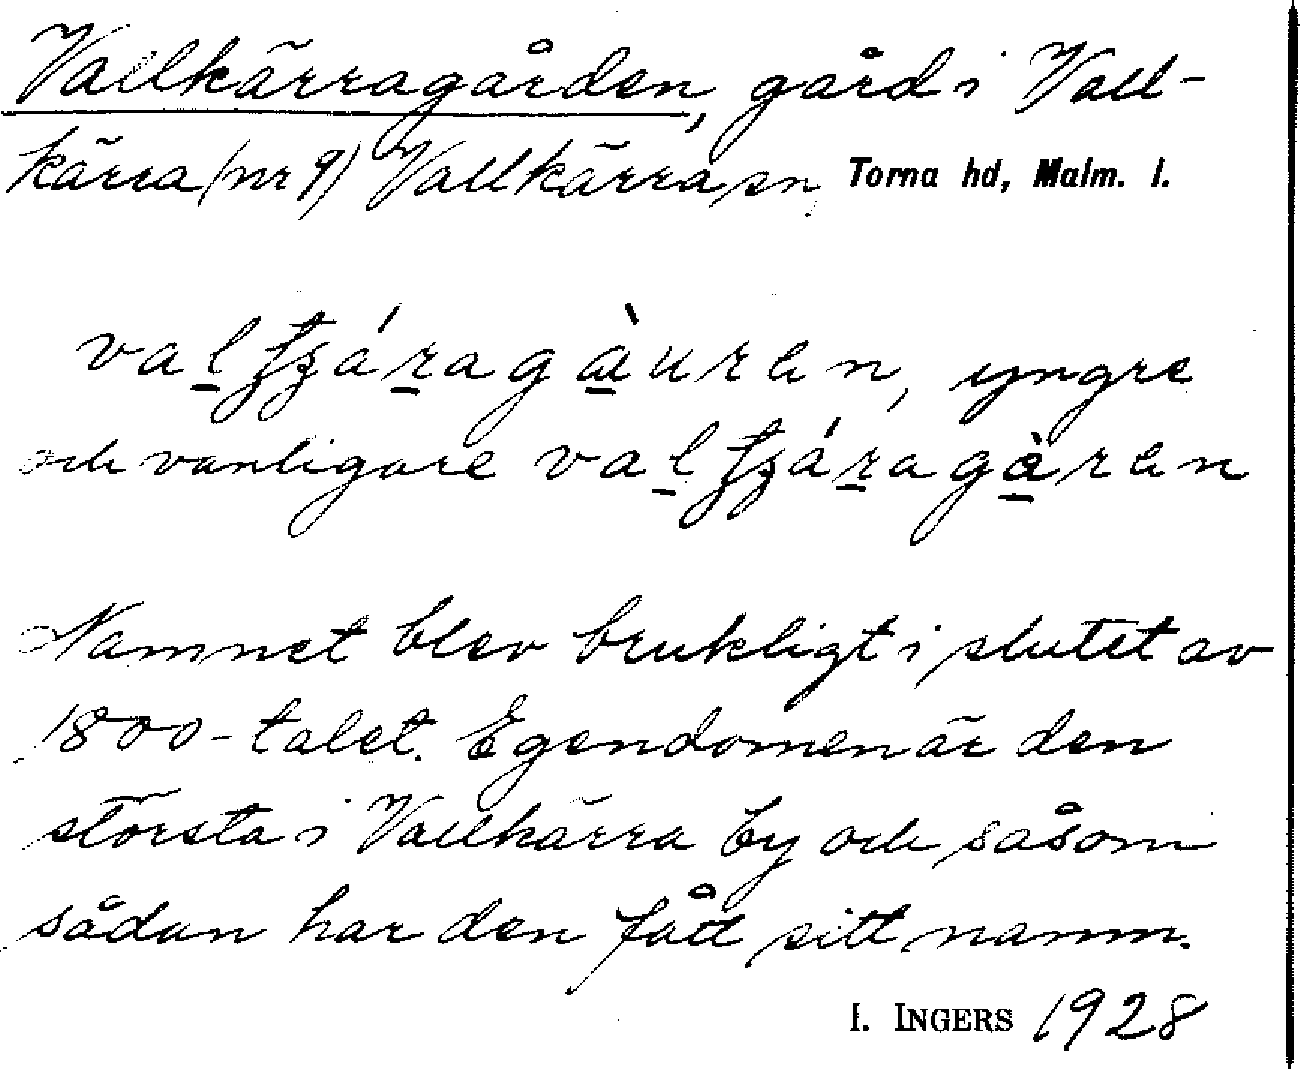 Vallkärragården, gård i Vall-
kärra (nr 9) Vallkärra sn, Torna hd, Malm. l.
yngre
och vanligare
Namnet blev brukligt i slutet av
1800-talet. Egendomen är den
största i Vallkärra by och såsom
sådan har den fått sitt namn.
I. INGERS 1928